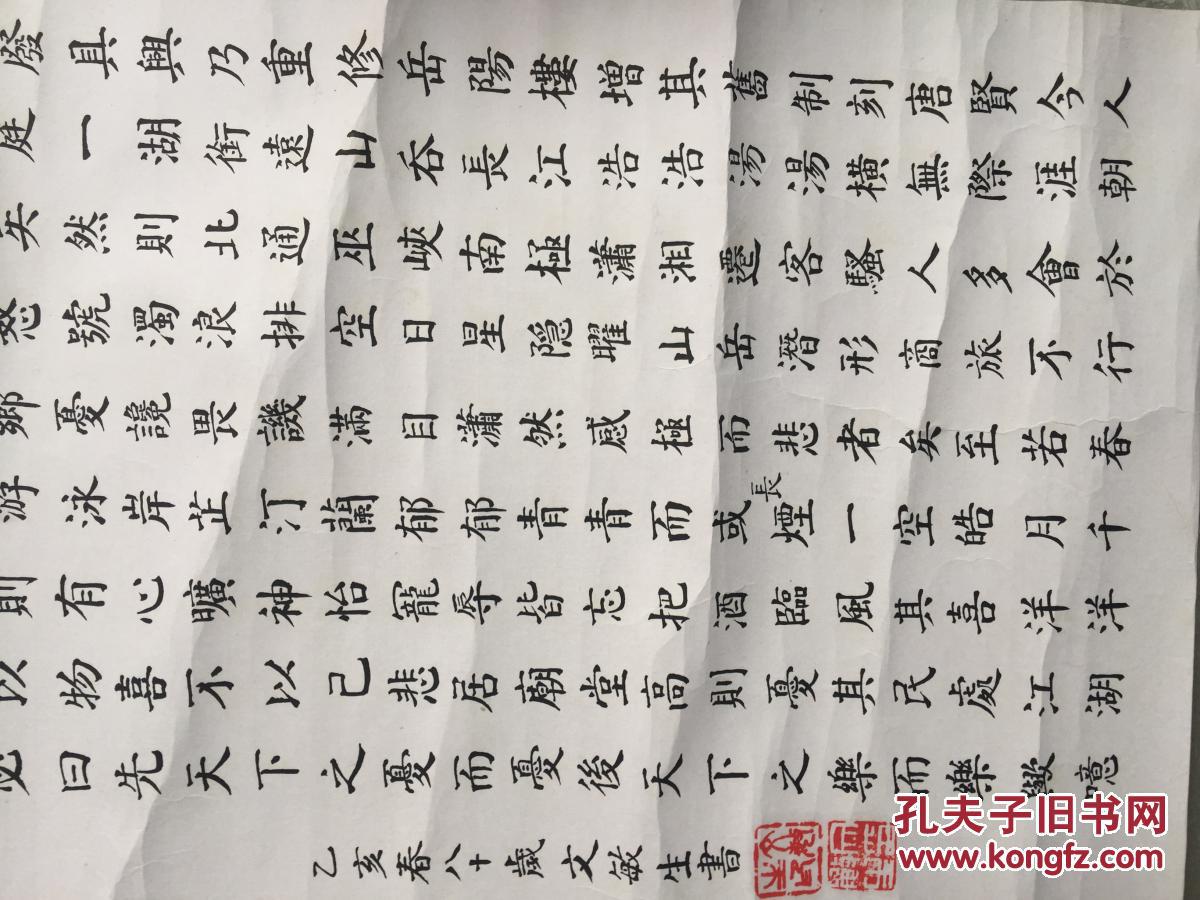 廢具興乃重修岳陽樓增其舊制刻唐賢今人
庭一湖銜遠山吞長江浩浩湯湯橫無際涯朝
矣然則北通巫峽南極瀟湘遷客騷人多會於
怒號濁浪排空日星隱曜山岳潛形商旅不行
鄉憂讒畏譏滿目瀟然感極而悲者矣至若春
游泳岸芷汀蘭郁郁青青而或長煙一空皓月千
則有心曠神怡寵辱皆忘把酒臨風其喜洋洋
以物喜不以己悲居廟堂高則憂其民處江湖
必曰先天下之憂而憂後天下之樂而樂歟噫
乙亥春八十歲文敏生書
孔夫子旧书网
www.kongfz.com